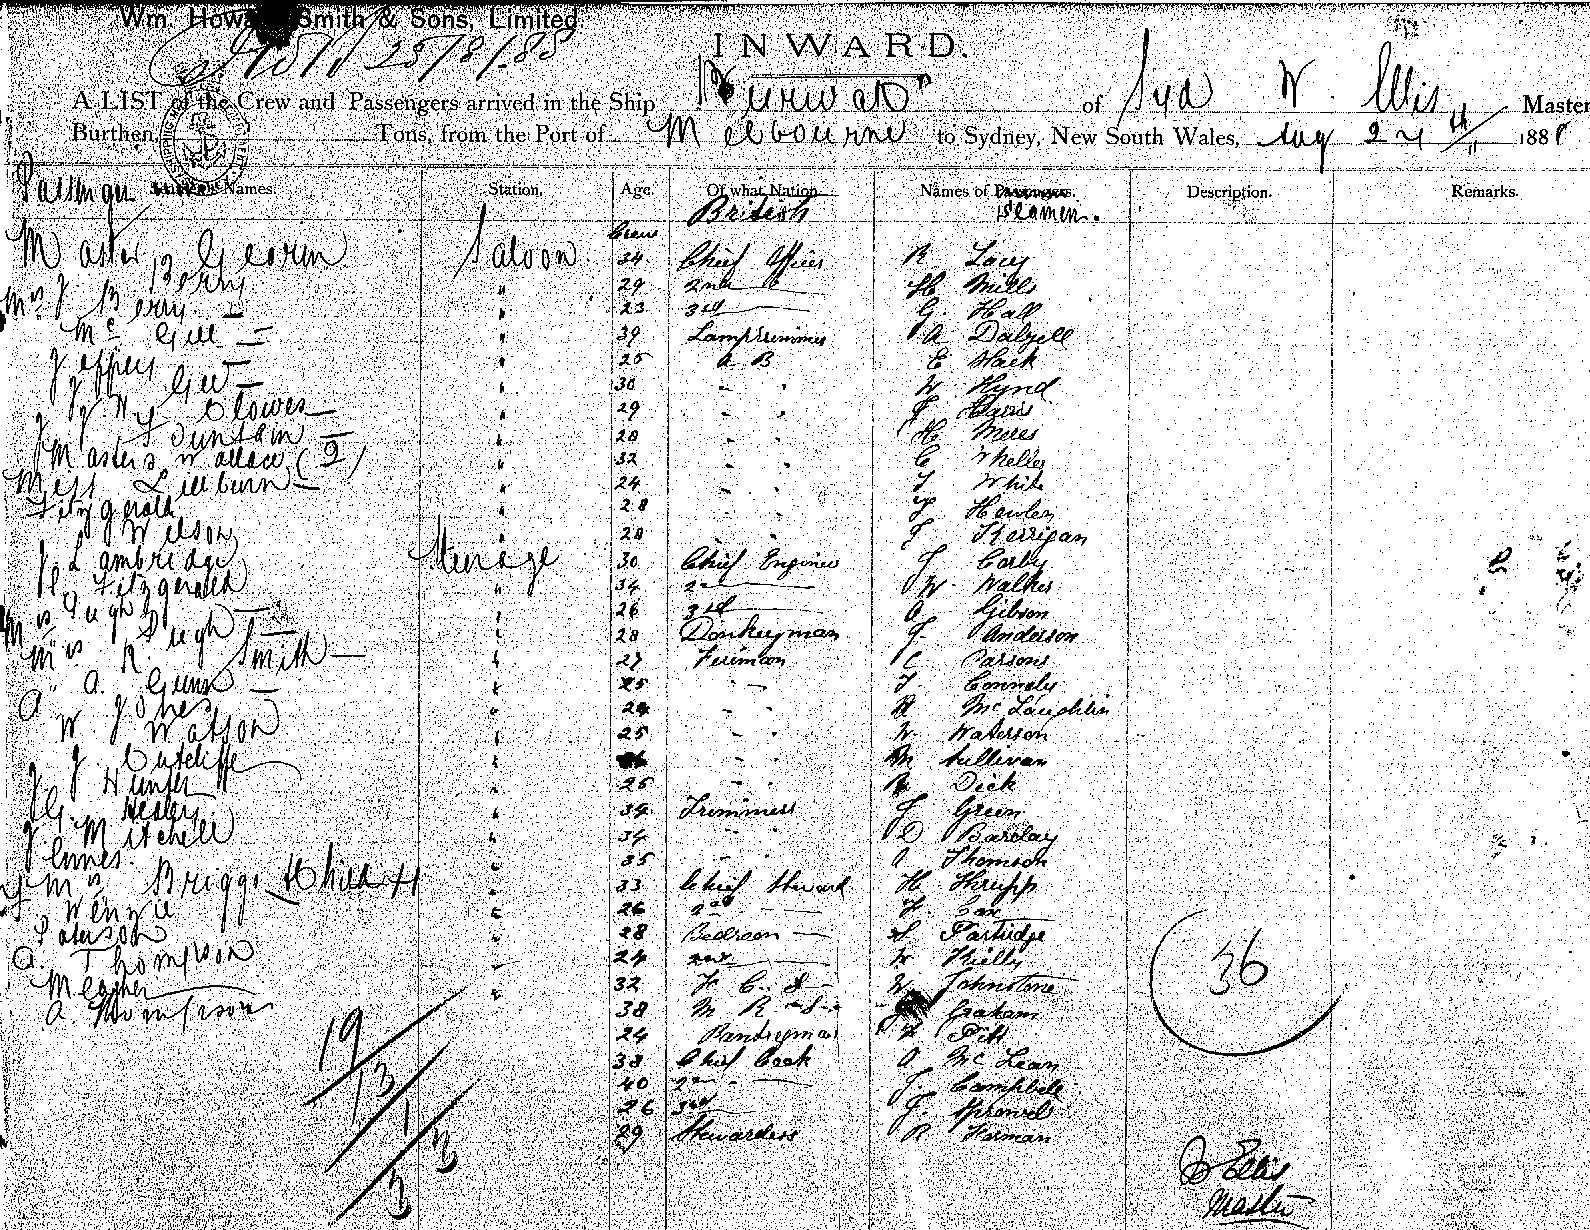 Wm. Howard Smith & Sons, Limited.
25/8/88
INWARD.
A LIST of the Crew and Passengers arrived in the Ship Burwah of Syd W. Ellis Master
Burthen Tons, from the Port of Melbourne to Sydney, New South Wales, Aug 24th 1888
Passenger Names. Station. Age. Of what Nation. Names of Passengers. Description. Remarks.
British Seamen.
Crew
Master Saloon 34 Chief Officer R Lacy
Berry " 29 2nd H Mills
Mrs J Berry " 23 3rd G. Hall
Mc Gill " 39 Lamptrimmer A Dalzell
Jeffery " 25 A B E Mack
Gill " 30 " " W Hynd
J W Clowes " 29 " " F Davis
J Dunstan " 20 " " H Meres
Masters Wallace (2) " 32 " " C Wheller
Miss Lilburn " 24 " " T White
Fitzgerald " 28 " " T Hewlen
J Wilson 20 " " F Kerrigan
J Lambridge Steerage 30 Chief Engineer J Corby
Fitzgerald " 34 2nd W. Walker
Mrs Pugh " 26 3rd A Gibson
Mrs R. Pugh " 28 Donkeyman J Anderson
Smith " 27 Fireman C Parsons
A. Gunn " 25 " " T Connoly
A Jones " 24 " " R McLaughlin
W Watson " 25 " " W Waterson
J Cutcliffe " " " M Sullivan
J Hunter " 25 " " R Dick
G. Healey " 34 Trimmers J Green
J Mitchell " 34 " " D Barclay
Innes " 35 " " A Thomson
Mrs Briggs & Child " 33 Chief Steward H Thrupp
" 26 2nd Cox
Paterson " 28 Bedroom S Partridge
A. Thompson " 24 2nd W Kielly
Meagher " 32 F C. S W Johnstone
A. Thompson 38 M R S Graham
24 Pantryman F Pitt
38 Chief Cook A McLean
40 2nd J Campbell
26 3rd J. Sprowels
29 Stewardess R Harman
36
19
13
1
3
3
Ellis
Master